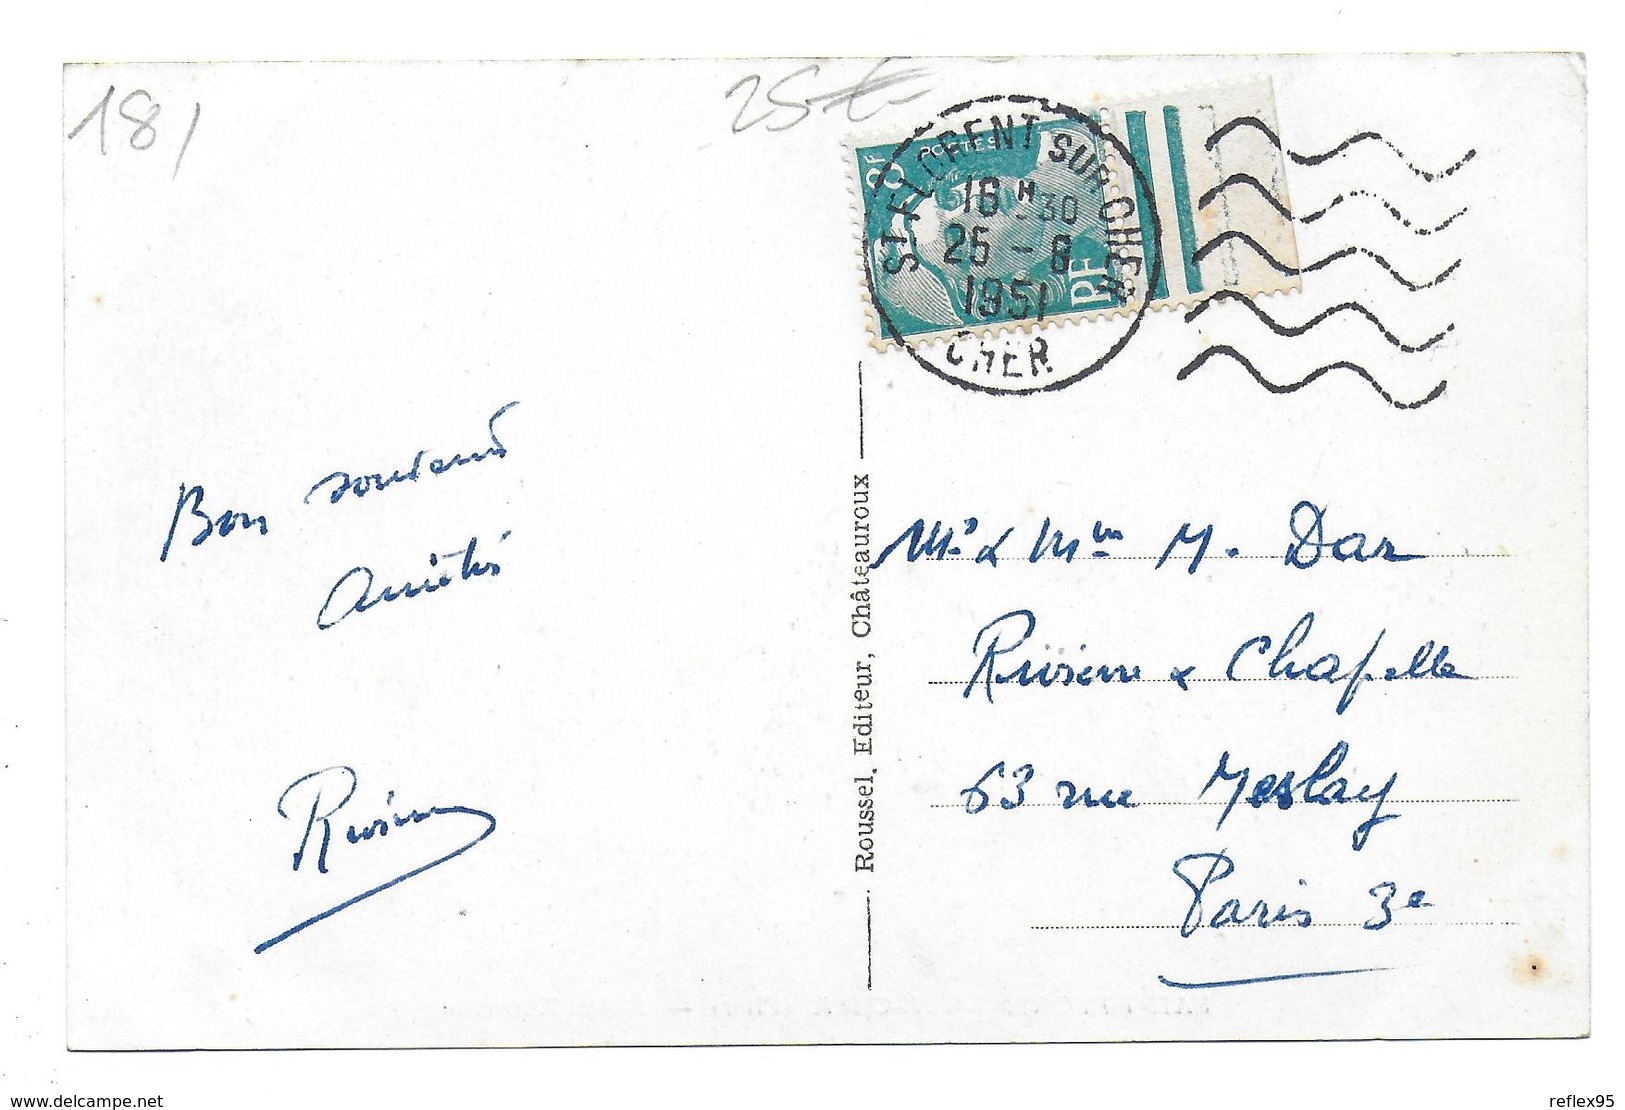 18/
25 €
8F POSTES
RF
ST FLORENT SUR CHER
16 H 30
26 - 6
1951
CHER
Bon souvenir
amitiés
Rivierre
Roussel, Editeur, Châteauroux
Mr & Mme M. Dar
Rivierre & Chapelle
63 rue Meslay
Paris 3e
www.delcampe.net
reflex95